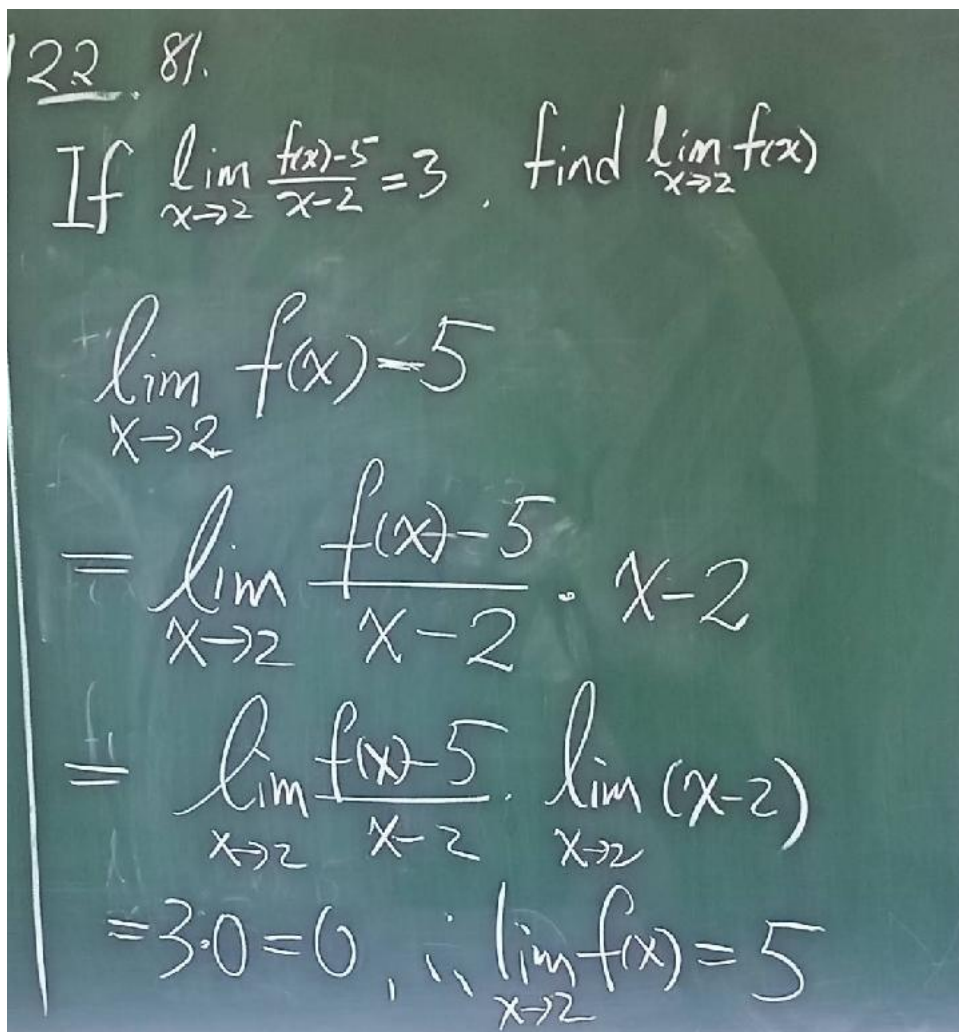 2.2. 81.
If lim x→2 (f(x)-5)/(x-2) = 3, find lim x→2 f(x)
lim x→2 f(x)-5
= lim x→2 (f(x)-5)/(x-2) · x-2
= lim x→2 (f(x)-5)/(x-2) · lim x→2 (x-2)
=3·0=0, ∴ lim x→2 f(x) = 5